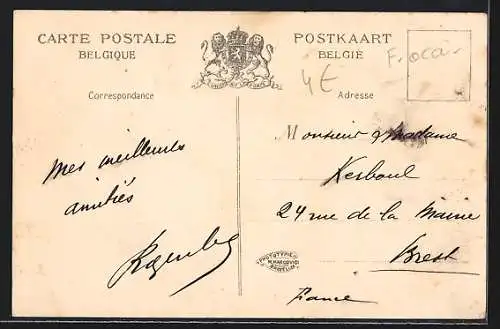 CARTE POSTALE
BELGIQUE
POSTKAART
BELGIË
4€
Correspondance
Adresse
Mes meilleures
amitiés
Monsieur & Madame
Kerboul
24 rue de la Mairie
Brest
France
PHOTOTYPIE
M. MARCOVICI
BRUXELLES